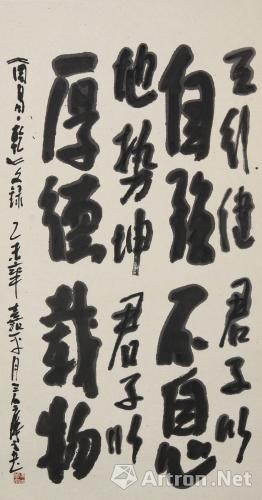 天行健君子以
自强不息
地势坤君子以
厚德載物
《周易·乾》文録 乙未年嘉平月
Artron.Net